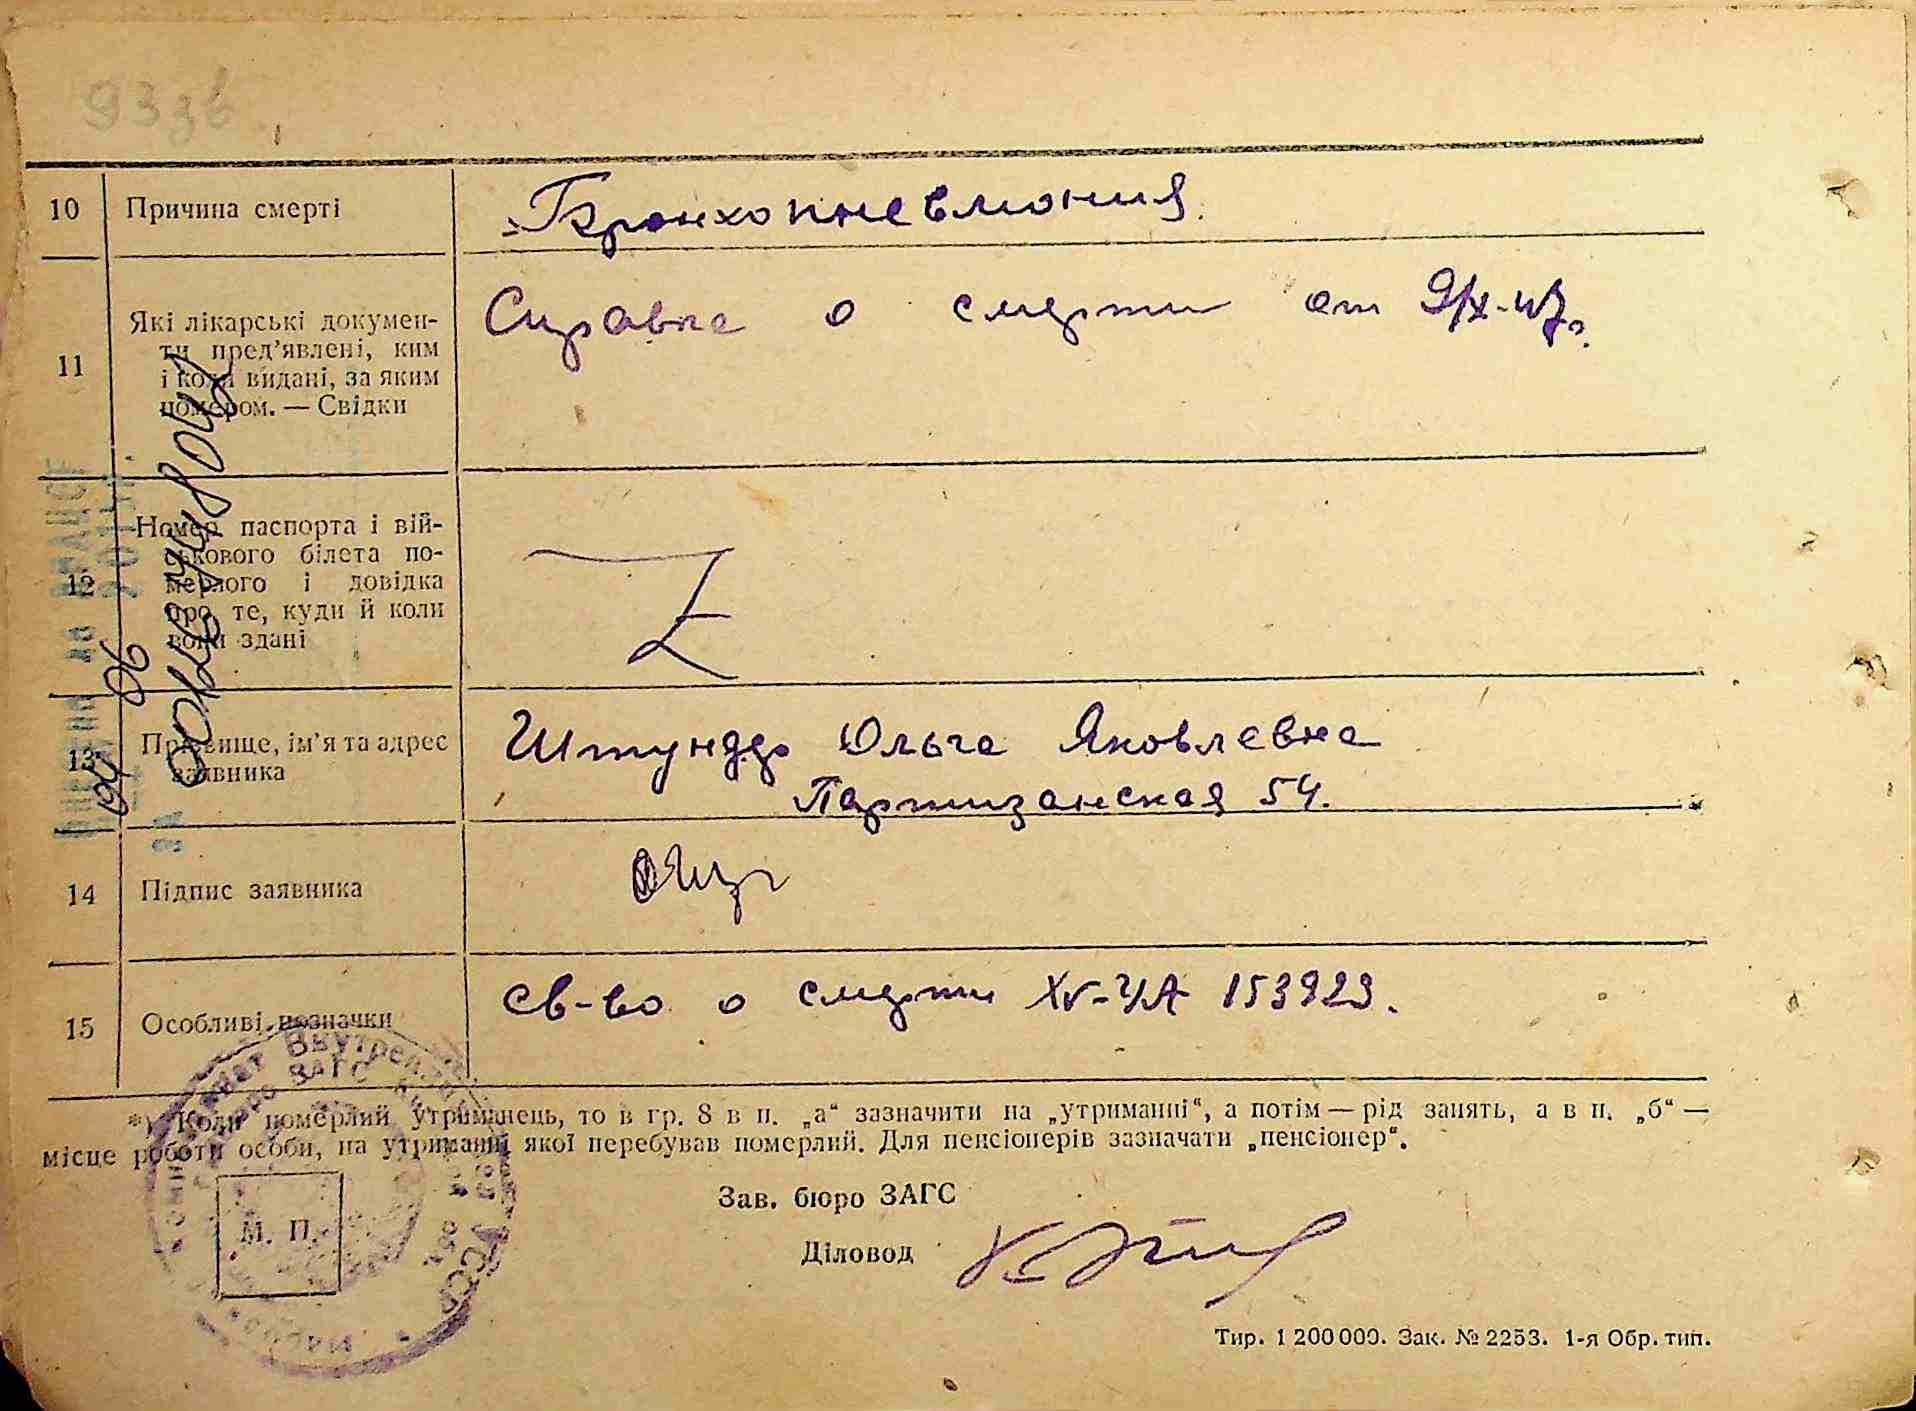 10 Причина смерті
Бронхопневмония.
11 Які лікарські докумен-
ти пред’явлені, ким
і коли видані, за яким
номером. — Свідки
Справка о смерти от 9/X-47г.
12 Номер паспорта і вій-
ськового білета по-
мерлого і довідка
про те, куди й коли
вони здані
Z
13 Прізвище, ім’я та адрес
заявника
Ольга Яковлевна
Партизанская 54.
14 Підпис заявника
15 Особливі позначки
св-во о смерти XV-УА 153923.
*) Коли померлий утриманець, то в гр. 8 в п. „а“ зазначити на „утриманні“, а потім — рід занять, а в п. „б“ —
місце роботи особи, на утриманні якої перебував померлий. Для пенсіонерів зазначати „пенсіонер“.
Зав. бюро ЗАГС
М. П.
Діловод
Тир. 1 200 000. Зак. № 2253. 1-я Обр. тип.